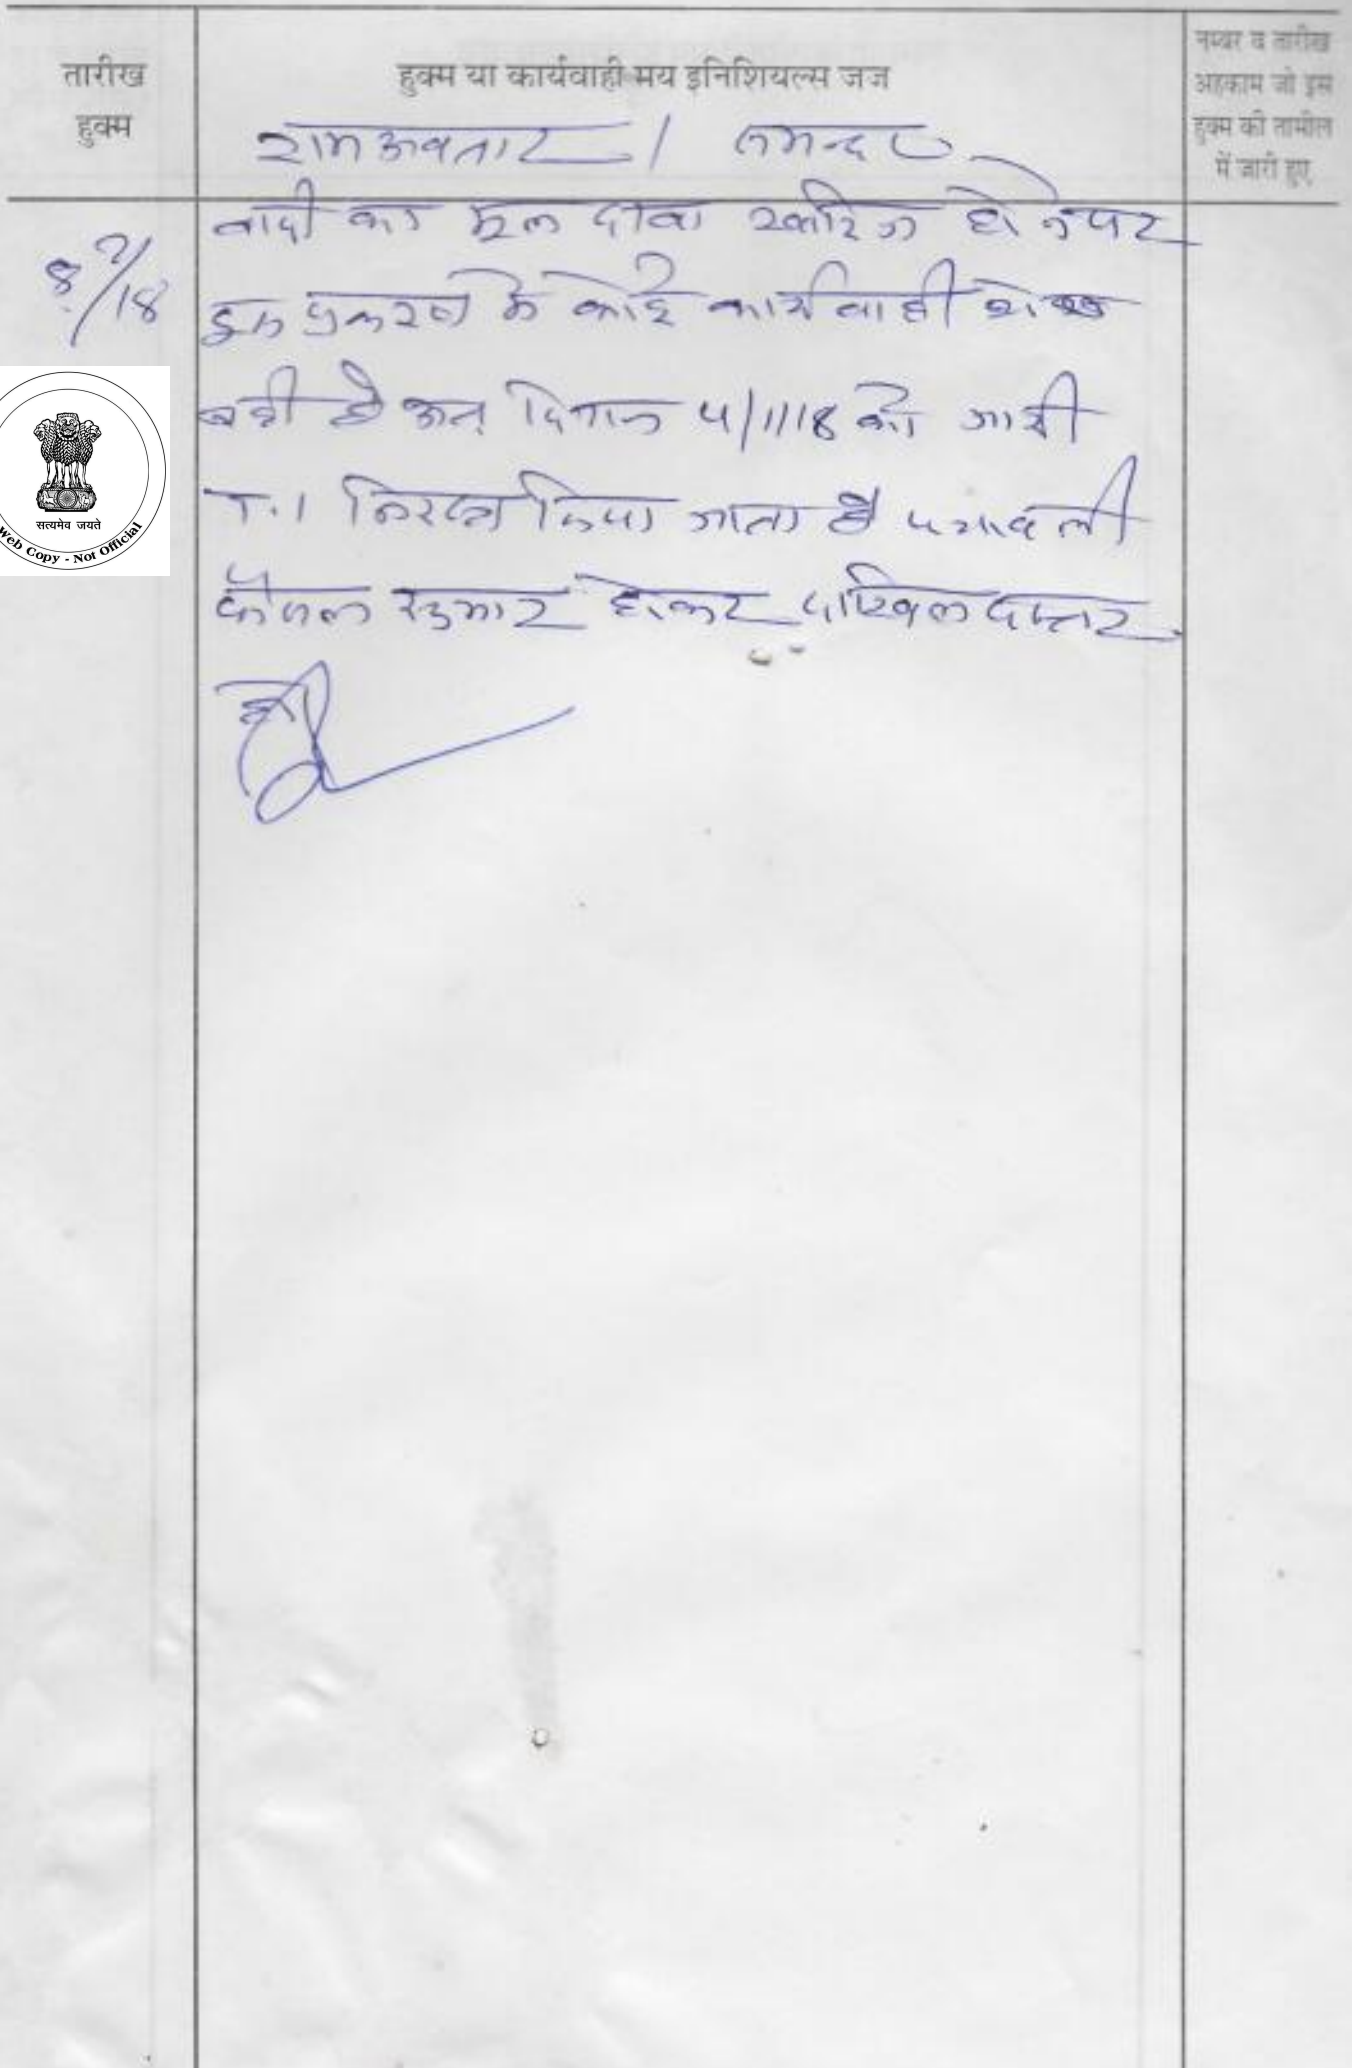 तारीख
हुक्म
हुक्म या कार्यवाही मय इनिशियल्स जज
नम्बर व तारीख
अहकाम जो इस
हुक्म की तामील
में जारी हुए
रामअवतार /
वादी का मूल दावा खारिज होने पर
8/7/18
इस प्रकरण में कोई कार्यवाही शेष
नही है अतः दिनांक 4/1/18 को जारी
T.I निरस्त किया जाता है पत्रावली
फैसल शुमार होकर दाखिल दफ्तर
हो
सत्यमेव जयते
Web Copy - Not Official